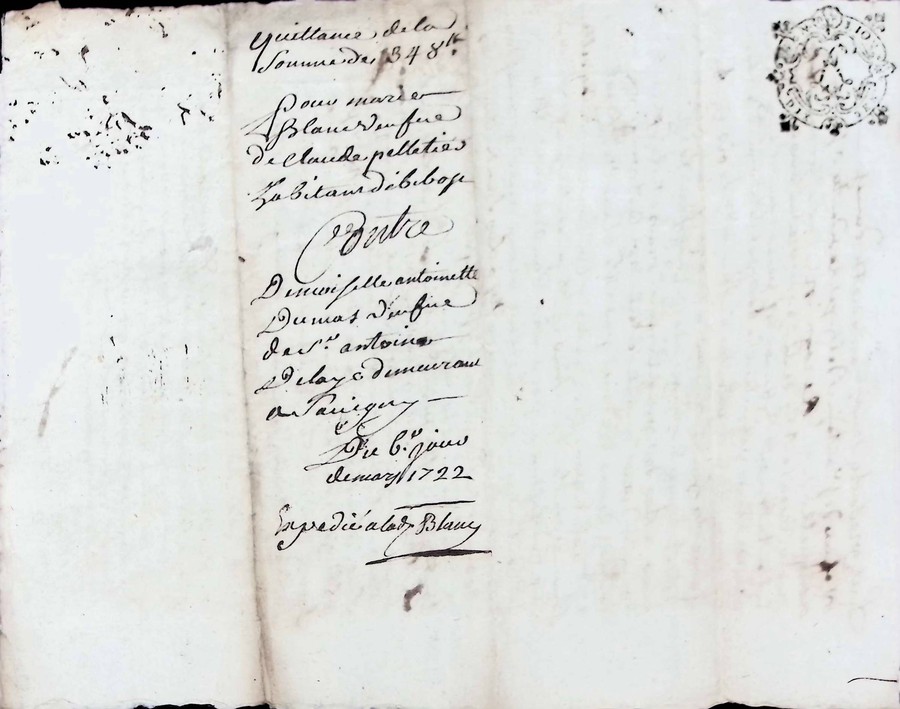 quittance de la
somme de 348 lt
Pour marie
Blanc veufue
de Claude pelletier
habitant
Contre
Demoiselle antoinette
Dumas veufue
de Sr. antoine
Delaye demeurant
a Savigny
Du 6e. jour
de mars 1722
Expedié a lad. Blanc